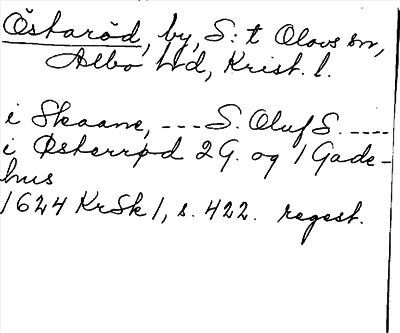 Östaröd, by, S:t Olovs sn,
Albo hd, Krist. l.
i Skaane, --- S. Oluf S. ----
i Østerrød 2 G. og 1 Gade-
hus
1624 KrSk 1, s. 422. regest.